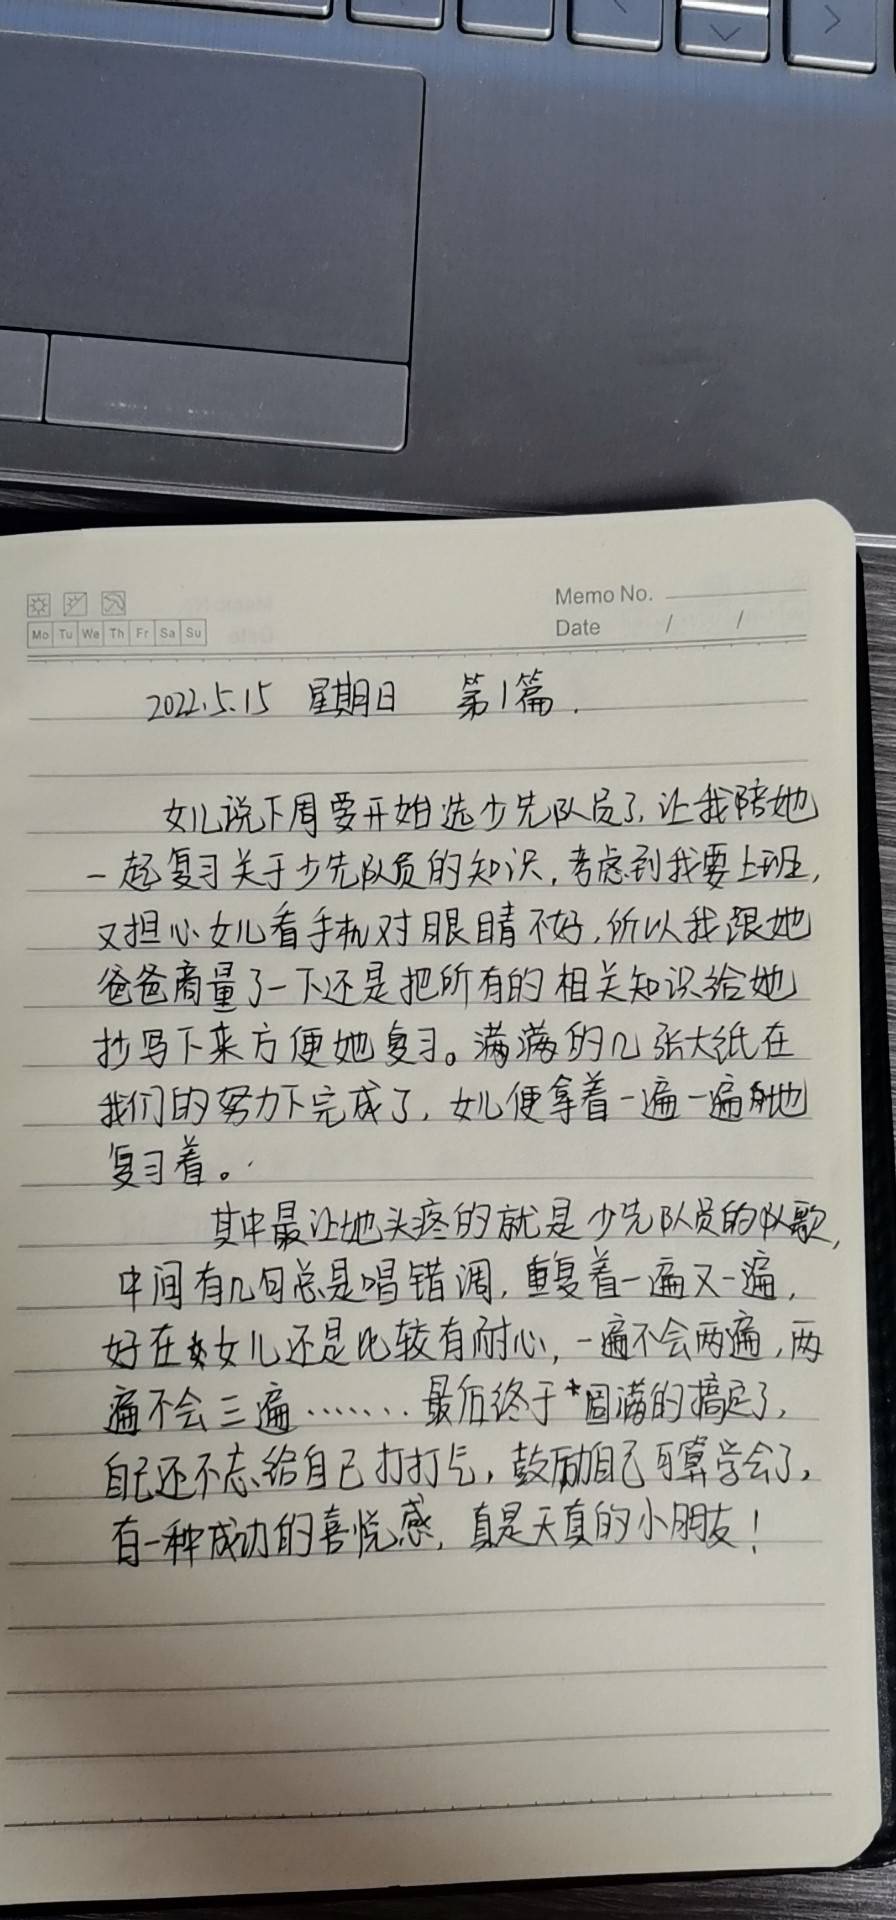 Memo No.
Mo Tu We Th Fr Sa Su
Date / /
2022.5.15 星期日 第1篇.
女儿说下周要开始选少先队员了,让我陪她
一起复习关于少先队员的知识,考虑到我要上班,
又担心女儿看手机对眼睛不好,所以我跟她
爸爸商量了一下还是把所有的相关知识给她
抄写下来方便她复习。满满的几张大纸在
我们的努力下完成了,女儿便拿着一遍一遍地
复习着。
其中最让她头疼的就是少先队员的队歌,
中间有几句总是唱错调,重复着一遍又一遍,
好在女儿还是比较有耐心,一遍不会两遍,两
遍不会三遍……最后终于圆满的搞定了,
自己还不忘给自己打打气,鼓励自己可算学会了,
有一种成功的喜悦感,真是天真的小朋友!